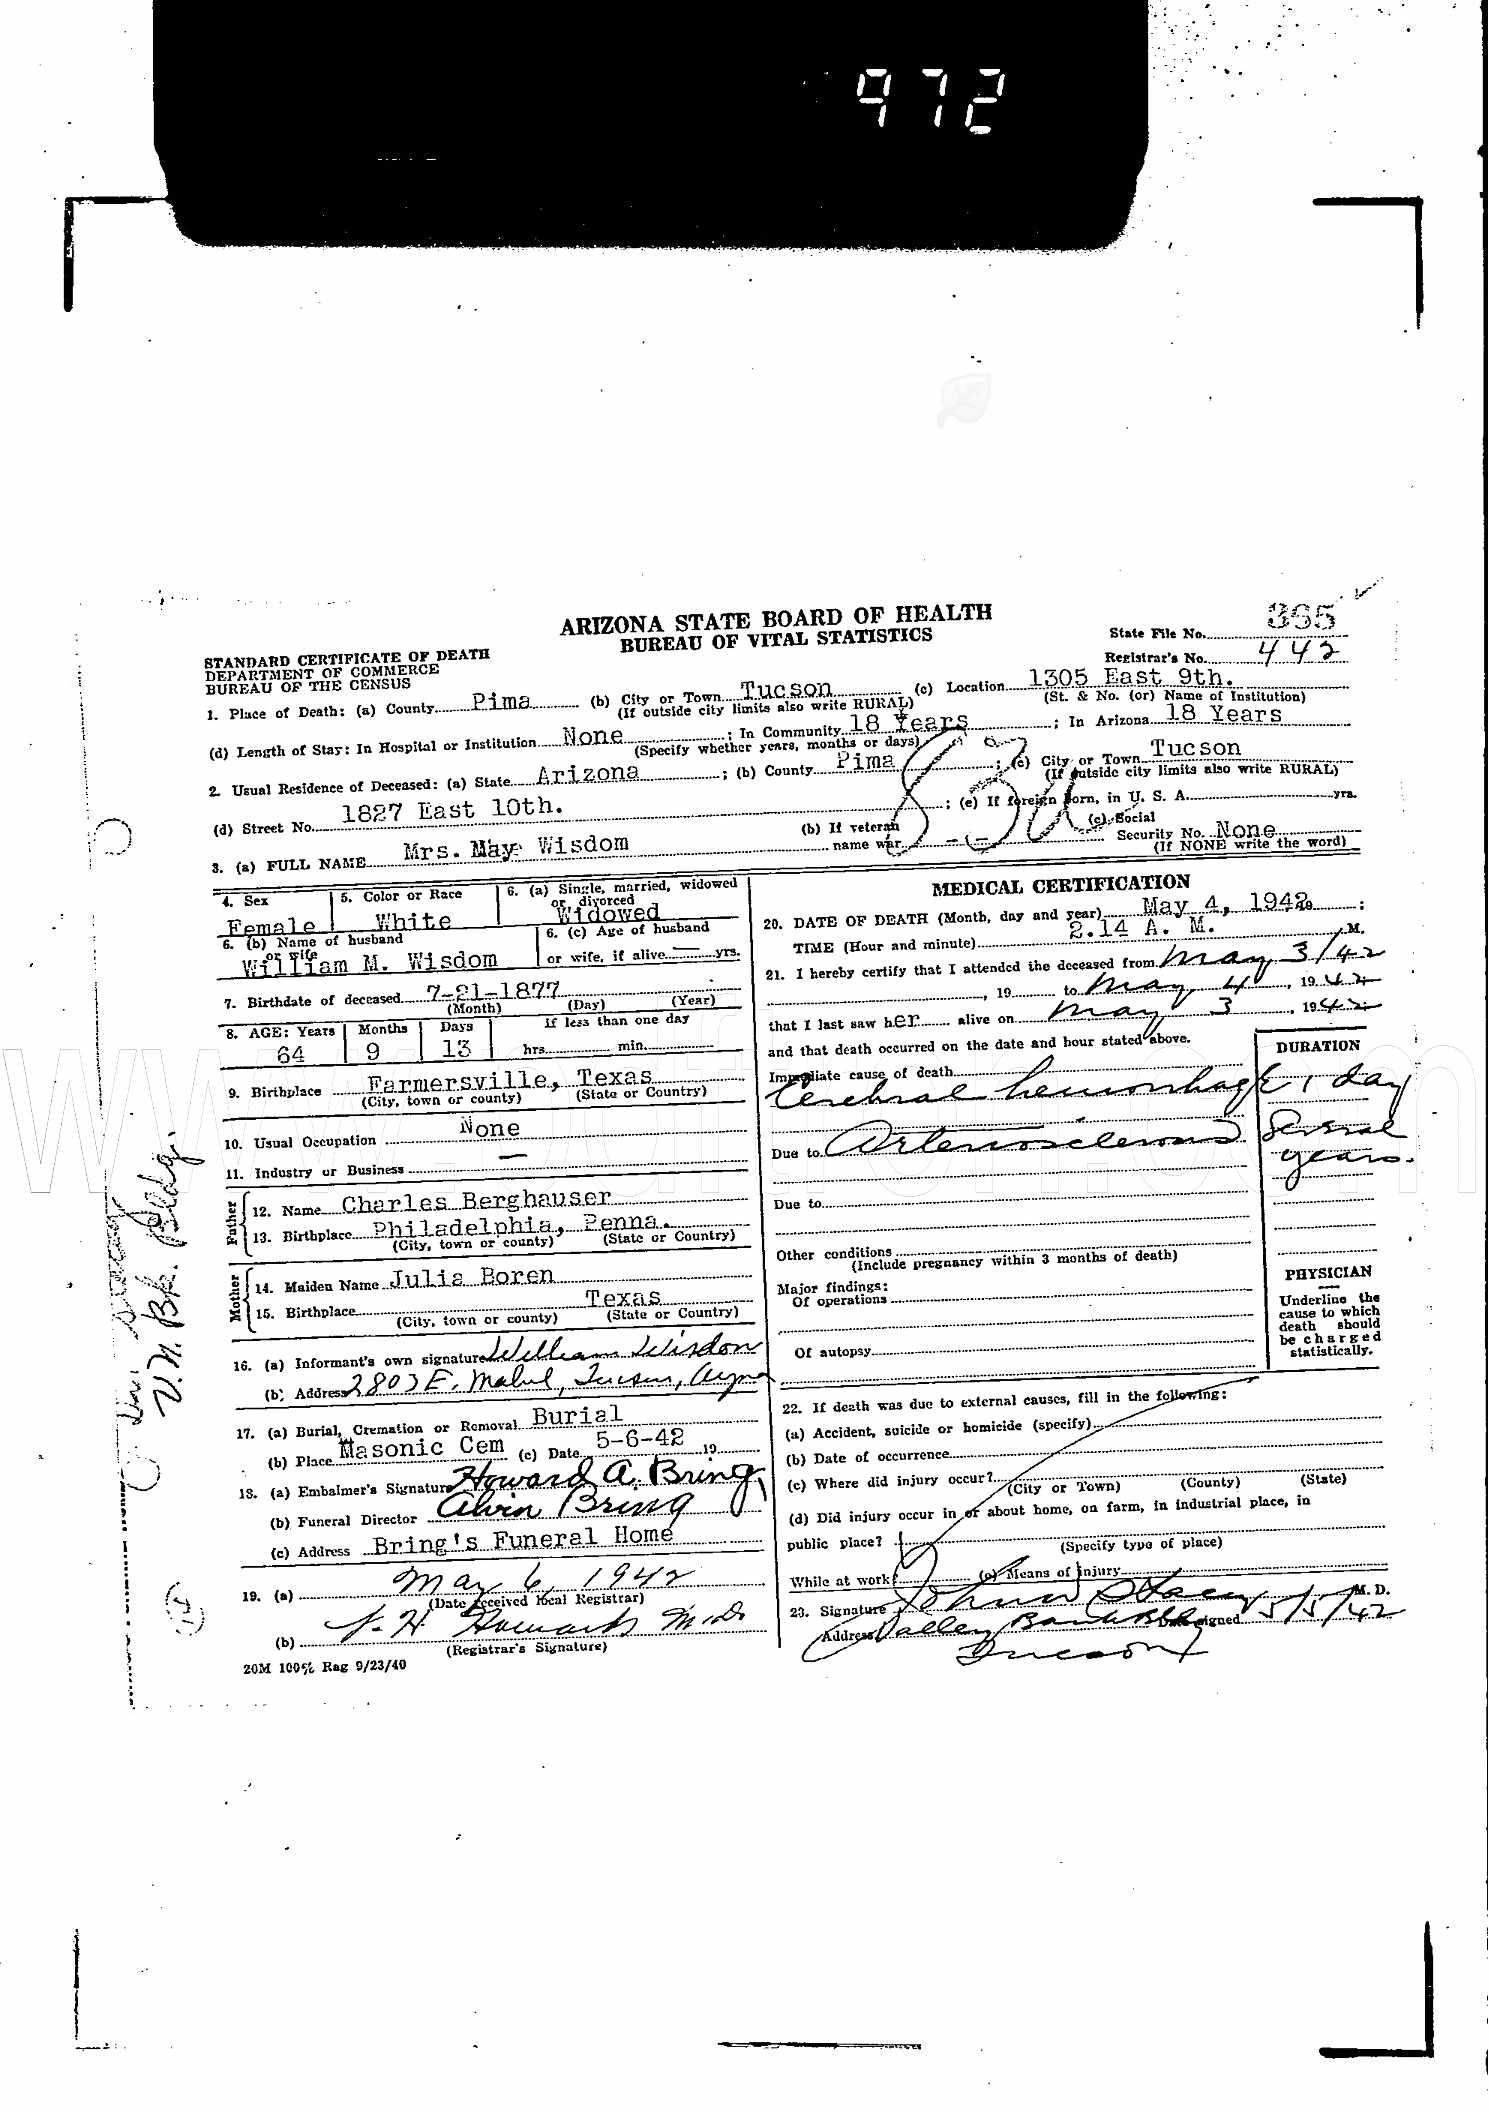 972
ARIZONA STATE BOARD OF HEALTH
BUREAU OF VITAL STATISTICS
State File No. 365
Registrar's No. 442
STANDARD CERTIFICATE OF DEATH
DEPARTMENT OF COMMERCE
BUREAU OF THE CENSUS
1. Place of Death: (a) County Pima (b) City or Town Tucson (c) Location 1305 East 9th.
(If outside city limits also write RURAL) (St. & No. (or) Name of Institution)
(d) Length of Stay: In Hospital or Institution None ; In Community 18 Years ; In Arizona 18 Years
(Specify whether years, months or days)
2. Usual Residence of Deceased: (a) State Arizona ; (b) County Pima ; (c) City or Town Tucson
(If outside city limits also write RURAL)
(d) Street No. 1827 East 10th. ; (e) If foreign born, in U. S. A. yrs.
3. (a) FULL NAME Mrs. May Wisdom (b) If veteran name war (c) Social Security No. None
(If NONE write the word)
4. Sex Female
5. Color or Race White
6. (a) Single, married, widowed or divorced Widowed
6. (b) Name of husband or wife William M. Wisdom
6. (c) Age of husband or wife, if alive — yrs.
7. Birthdate of deceased 7-21-1877
(Month) (Day) (Year)
8. AGE: Years 64 Months 9 Days 13 If less than one day hrs. min.
9. Birthplace Farmersville, Texas
(City, town or county) (State or Country)
10. Usual Occupation None
11. Industry or Business —
Father
12. Name Charles Berghauser
13. Birthplace Philadelphia, Penna.
(City, town or county) (State or Country)
Mother
14. Maiden Name Julia Boren
15. Birthplace Texas
(City, town or county) (State or Country)
16. (a) Informant's own signature William Wisdom
(b) Address 2803 E. Mabel, Tucson,
17. (a) Burial, Cremation or Removal Burial
(b) Place Masonic Cem (c) Date 5-6-42 19
18. (a) Embalmer's Signature Howard A. Bring
(b) Funeral Director Alvin Bring
(c) Address Bring's Funeral Home
19. (a) May 6, 1942
(Date received local Registrar)
(b) Howard M.D.
(Registrar's Signature)
20M 100% Rag 9/23/40
MEDICAL CERTIFICATION
20. DATE OF DEATH (Month, day and year) May 4, 1942 ;
TIME (Hour and minute) 2.14 A. M. M.
21. I hereby certify that I attended the deceased from May 3/42
, 19 to May 4 , 1942
that I last saw her alive on May 3 , 1942
and that death occurred on the date and hour stated above.
DURATION
Immediate cause of death
Cerebral hemorrhage 1 day
Due to Arteriosclerosis Several years.
Due to
Other conditions
(Include pregnancy within 3 months of death)
Major findings:
Of operations
Of autopsy
PHYSICIAN
Underline the cause to which death should be charged statistically.
22. If death was due to external causes, fill in the following:
(a) Accident, suicide or homicide (specify)
(b) Date of occurrence
(c) Where did injury occur?
(City or Town) (County) (State)
(d) Did injury occur in or about home, on farm, in industrial place, in
public place?
(Specify type of place)
While at work? (e) Means of injury
23. Signature John W Stacey M. D.
Address Valley Bank Bldg Date signed 5/5/42
Tucson
V.N. Bk. Bldg.